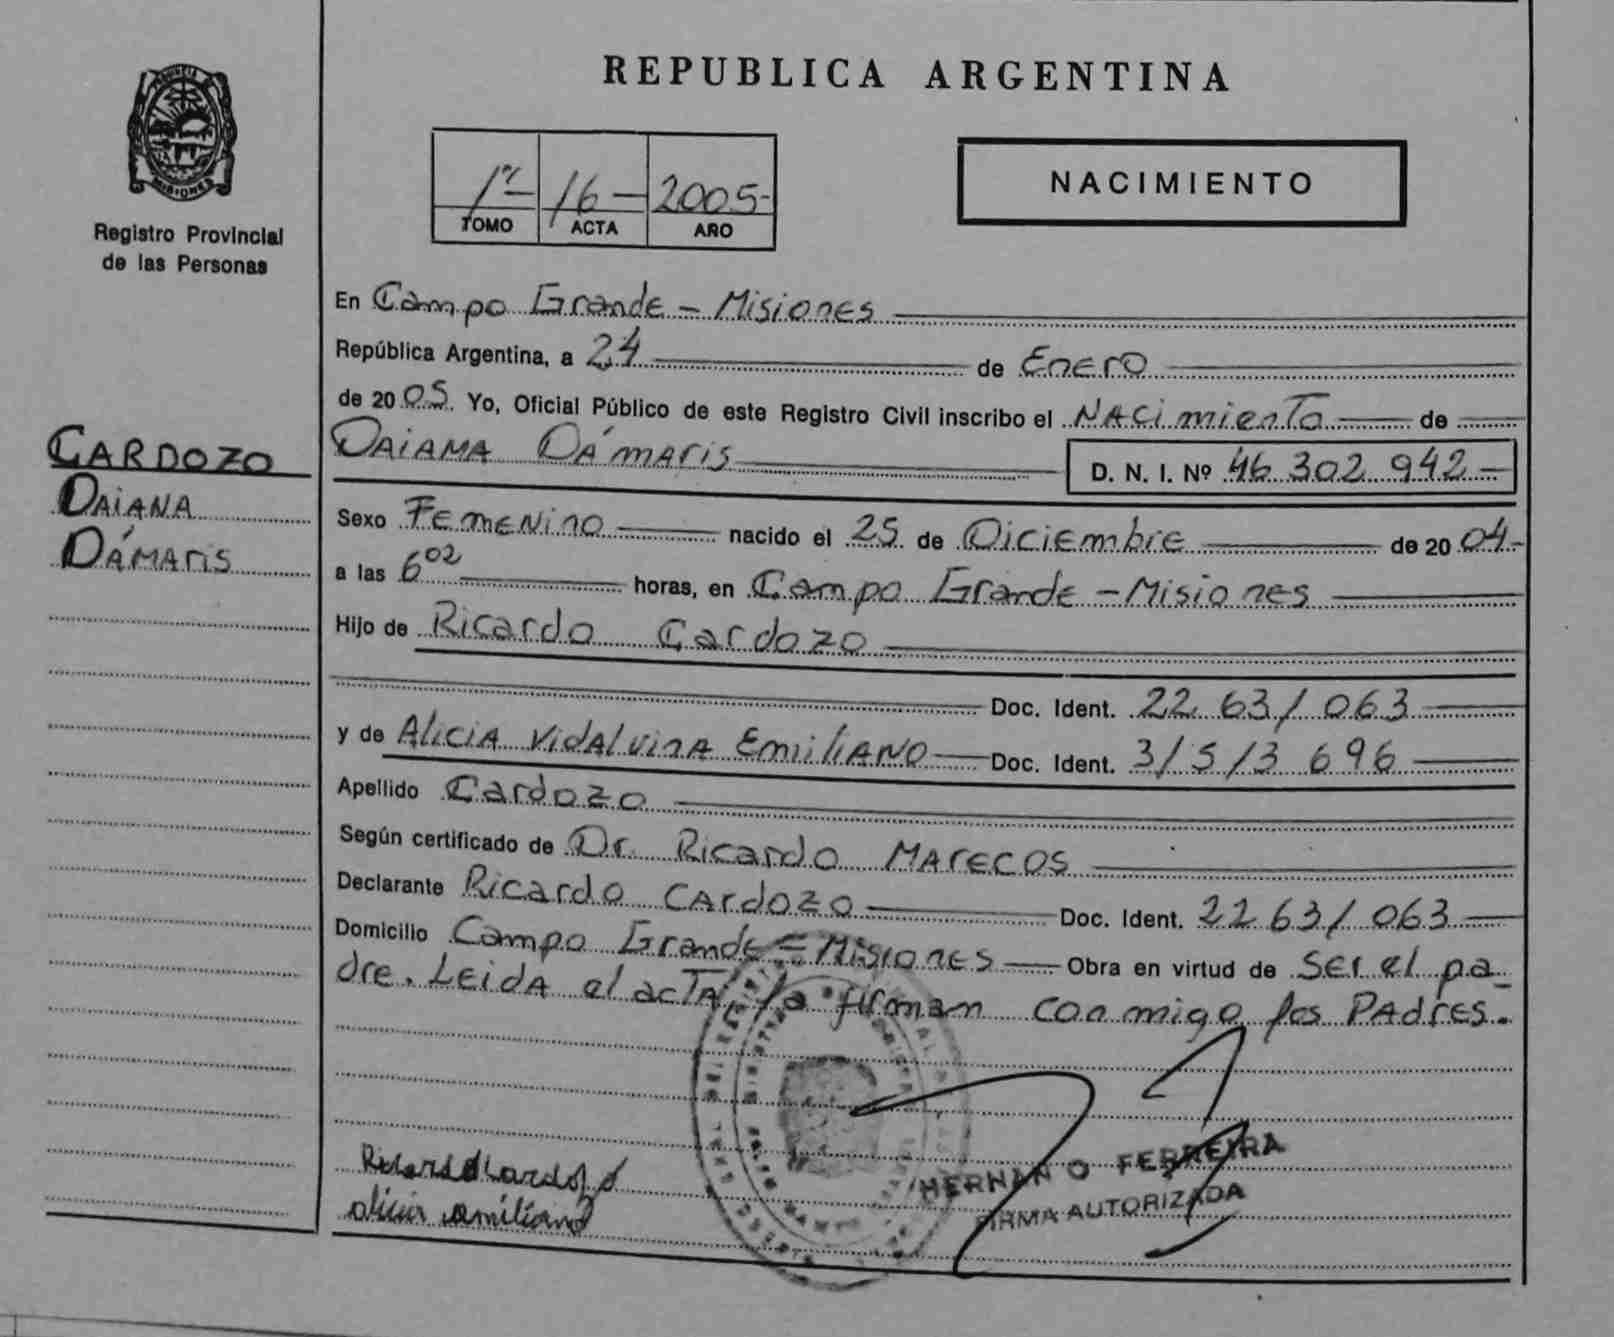 PROVINCIA DE
MISIONES
Registro Provincial
de las Personas
CARDOZO
DAIANA
DÁMARIS
REPUBLICA ARGENTINA
1º 16- 2005-
TOMO ACTA AÑO
NACIMIENTO
En Campo Grande - Misiones
República Argentina, a 24 de Enero
de 2005 Yo, Oficial Público de este Registro Civil inscribo el NACimienTo de
DAiAMA DÁmaris D. N. I. Nº 46 302 942-
Sexo FEMENiNO nacido el 25 de Diciembre de 2004-
a las 6 02 horas, en Campo Grande - Misiones
Hijo de Ricardo Cardozo
Doc. Ident. 22 631 063
y de Alicia Vidalvina Emiliano Doc. Ident. 31 513 696
Apellido Cardozo
Según certificado de Dr. Ricardo MARECOS
Declarante Ricardo CARdozo Doc. Ident. 22 631 063
Domicilio Campo Grande = Misiones Obra en virtud de ser el pa-
dre. Leida el acta, la firman conmigo los PAdres.
alicia emiliano
HERNAN O FERREIRA
FIRMA AUTORIZADA